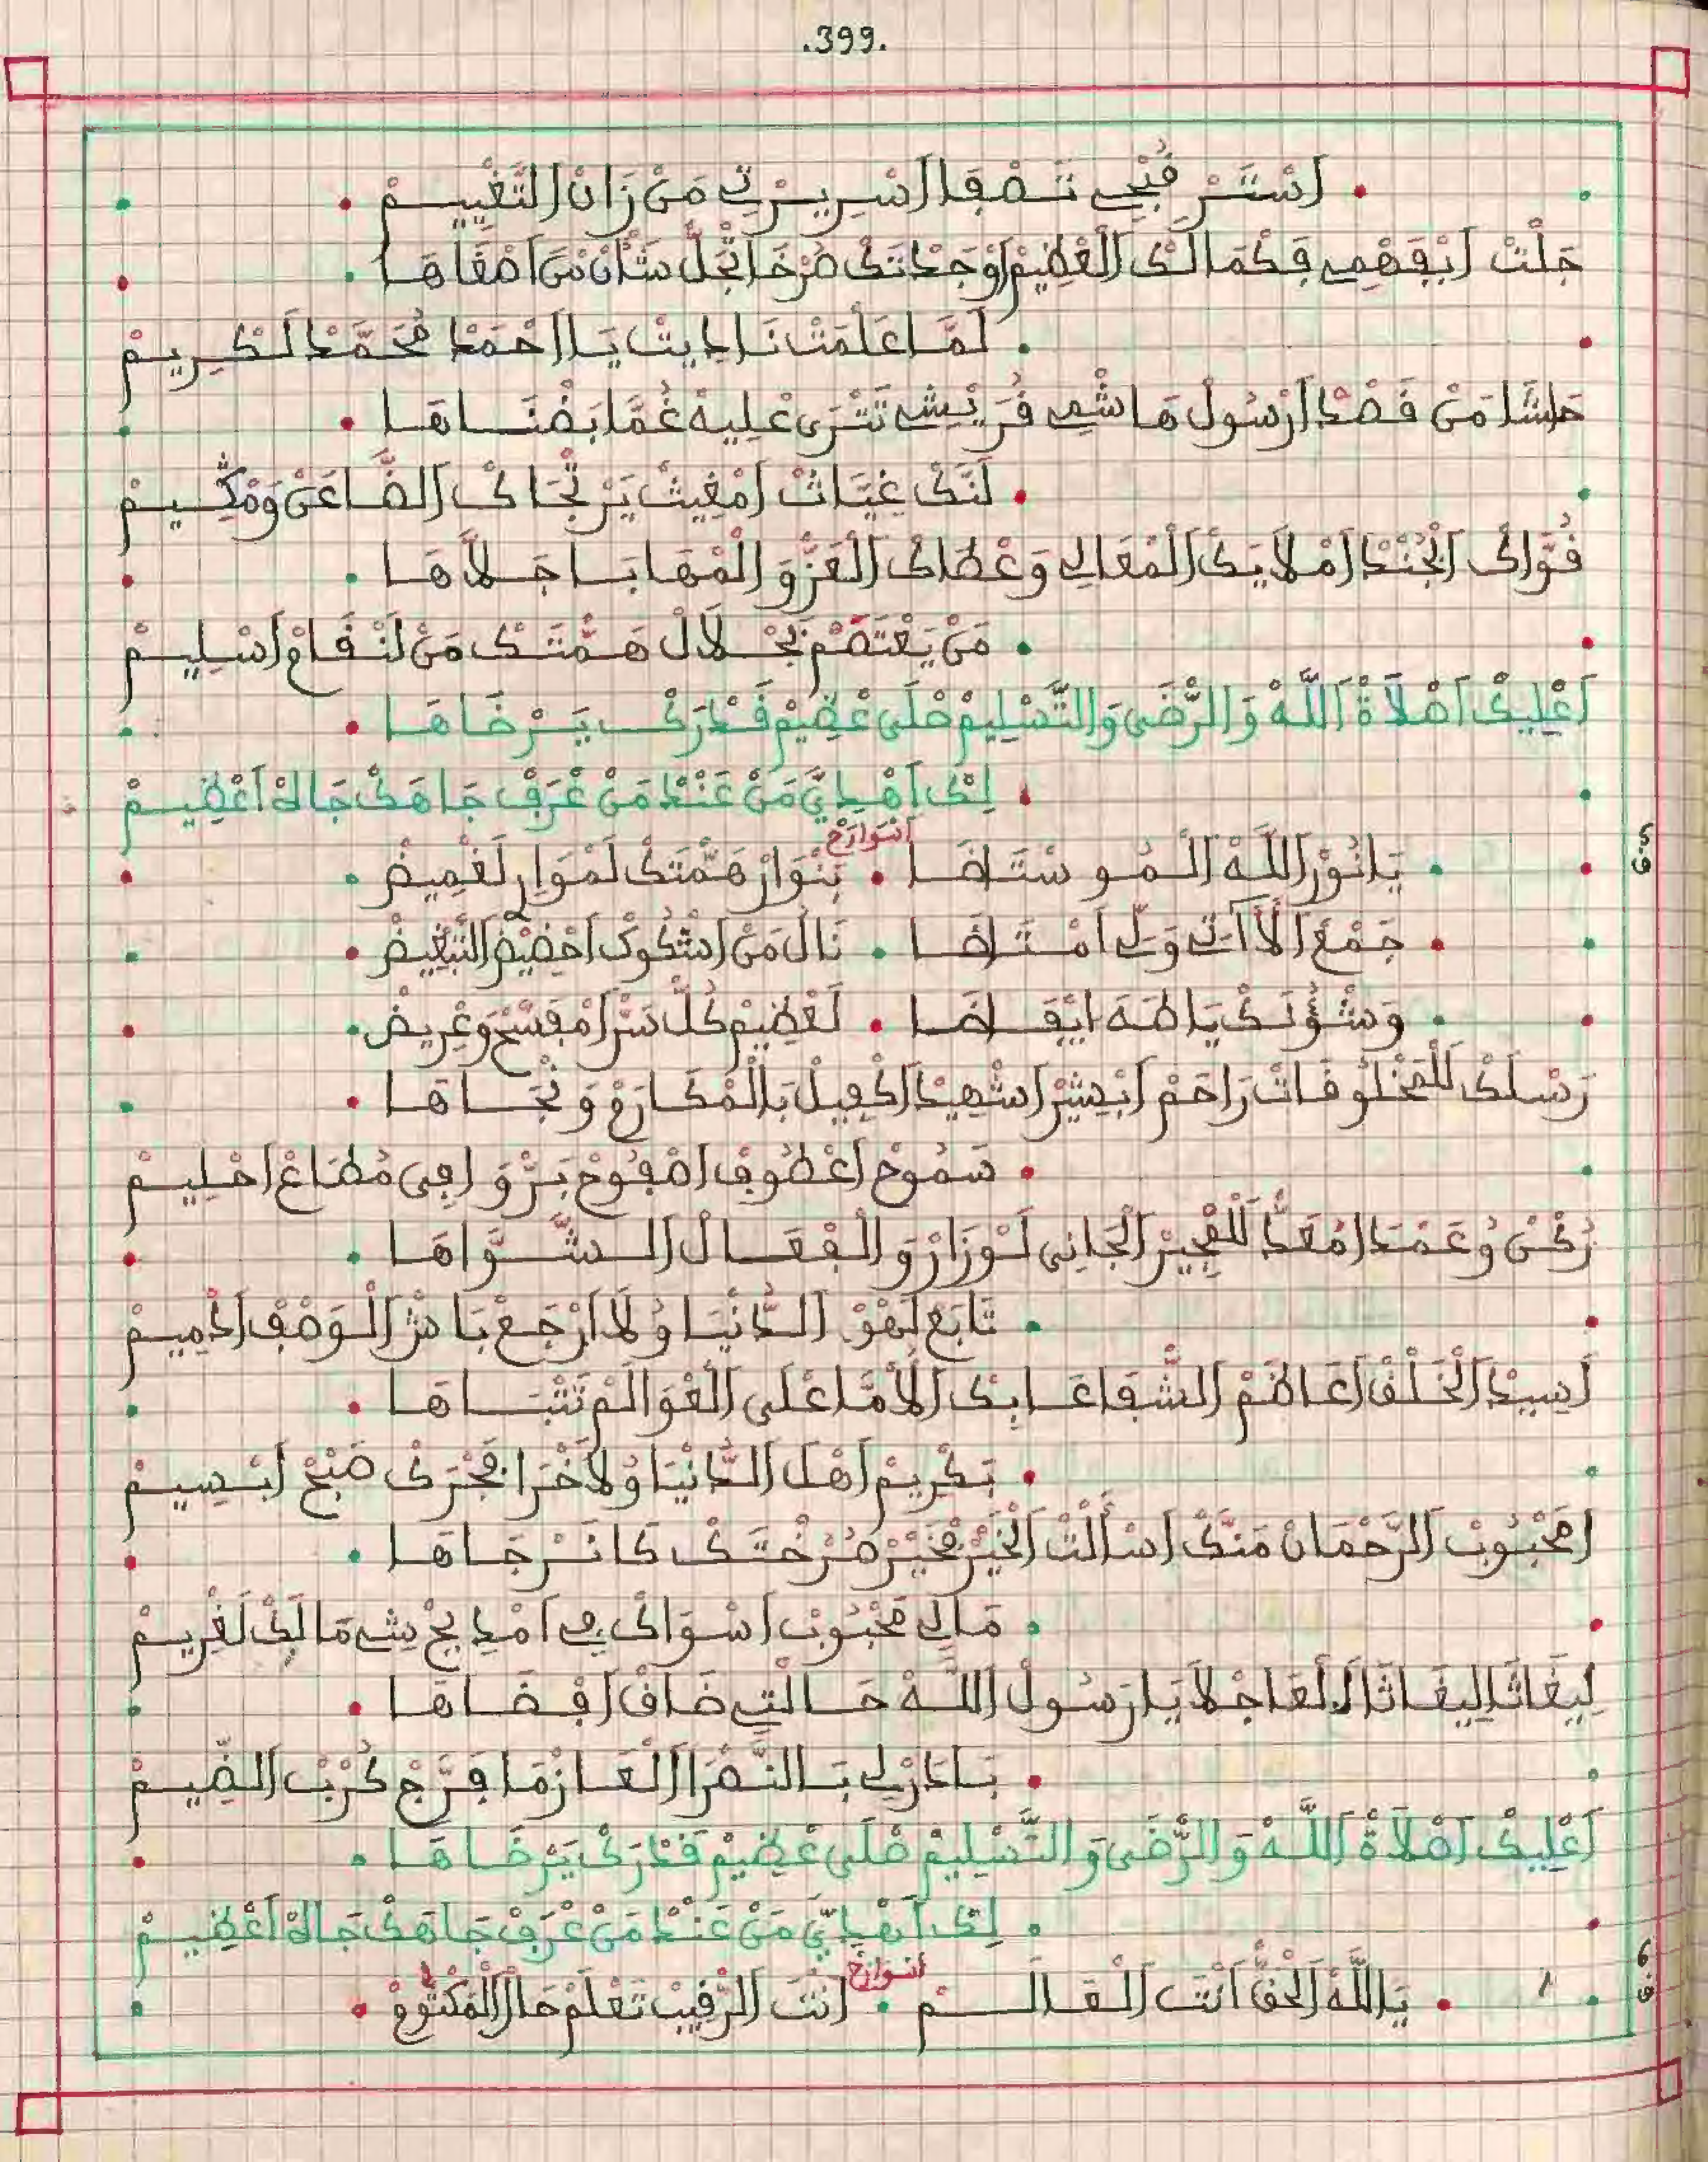 .399.
اَسْتَرْ قُبْحِي تَصْفَا اسْرِيرْتِي مَنْ رَانْ التَّغْيِيمْ
جَلْتْ ابْفَهْمِي فِكْمَالَكْ الْعْظِيمْ اوْجَدْتَكْ صَرْخَا تَجَّلْ شَانْ مَنْ اصْفَاهَا
لَمَّا عَلَمْتْ نَادِيتْ يَا احْمَدْ مُحَمَّدْ لَكْرِيمْ
حَاشَا مَنْ قَصْدْ ارْسُولْ هَاشْمِي قُرَيْشِي تَتْرَى عْلِيهْ غُمَّا بَضْنَاهَا
لَنَّكْ غِيَّاتْ امْغِيثْ يَرْتْجَاكْ الضَّاعَنْ وَمْكِيمْ
قُوَّاكْ الْجُنْدْ امْلَايَكْ الْمْعَالِي وَعْطَاكْ الْعَزّْ وَالْمْهَابَا جَلَّاهَا
مَنْ يَعْتَصْمْ بَجْلَالْ هَمّْتَكْ مَنْ لَنْقَامْ اسْلِيمْ
اعْلِيكْ اصْلَاةْ اللَّهْ وَالرّْضَى وَالتَّسْلِيمْ صْلَى عْضِيمْ قَدْرَكْ يَرْضَاهَا
لِكْ اهْدِانِي مَنْ عَنْدْ مَنْ عْرَفْ جَاهَكْ جَاهْ اعْظِيمْ
5 ق
يَا نُورْ اللَّهْ الْمُوسْتَاضَا • بَنْوَارْ هَمّْتَكْ لَمْوَارْ لَغْمِيضْ
انْوَارَخْ
جَمْعْ الْآتِي وَلِّي امْتَاضَا • نَالْ مَنْ اشْكُوكْ احْضِيضْ التَّبْغِيضْ
وَشْؤُنَكْ يَا طَهَ ايْقَاضَا • لَعْظِيمْ كُلّْ سَرّْ امْفَسَّحْ وَعْرِيضْ
رَسْلَكْ لَلْمَخْلُوقَاتْ رَاحَمْ ابْشِيرْ اشْهِيدْ اكْفِيلْ بَالْمْكَارَمْ وَنْجَاهَا
سَمُوحْ اعْطُوفْ اصْفُوحْ بَرّْ وَافِى مُطَاعْ احْلِيمْ
رُكْنْ وُعَمْدَا مُعَدّْ لَلْفْجِيرْ الْجَانِى لَوْزَارْ وَالْفْعَالْ الشَّوَّاهَا
تَابَعْ لَهْوْ الدَّنْيَا وُلَا ارْجَعْ بَاشْ الْوَصْفْ ادْمِيمْ
اسِيدْ الْخَلْقْ اعَاظَمْ الشّْفَاعَا بِكْ الْأُمَّا عْلَى الْعْوَالَمْ تَتْبَاهَا
تَكْرِيمْ اهْلْ الدَّنْيَا وُلَاخْرَا فَجْرَكْ صَبْحْ ابْسِيمْ
امَحْبُوبْ الرَّحْمَانْ مَنَّكْ اسْأَلْتْ الْخَيْرْ مَخْيَرْ صُرْخْتَكْ كَانَرْجَاهَا
مَالِي مَحْبُوبْ اسْوَاكْ فِي امْدِيحْ شِي مَالَكْ لَغْرِيمْ
لِيغَاثَا لِيغَاثَا الْعَاجْلَا يَا رَسُولْ اللَّهْ حَالْتِي ضَاقْ افْضَاهَا
بَادَرْلِي بَالنَّصْرَا الْعَازْمَا فَرَّجْ كُرْبْ الضِّيمْ
اعْلِيكْ اصْلَاةْ اللَّهْ وَالرّْضَى وَالتَّسْلِيمْ صْلَى عْضِيمْ قَدْرَكْ يَرْضَاهَا
لِكْ اهْدِانِي مَنْ عَنْدْ مَنْ عْرَفْ جَاهَكْ جَاهْ اعْظِيمْ
6 ق
يَاللَّهْ الْحَقّْ انْتَ الْعَالَمْ • انْتَ الرّْقِيبْ تَعْلَمْ حَالْ الْمَكْتُومْ
انْوَارَخْ